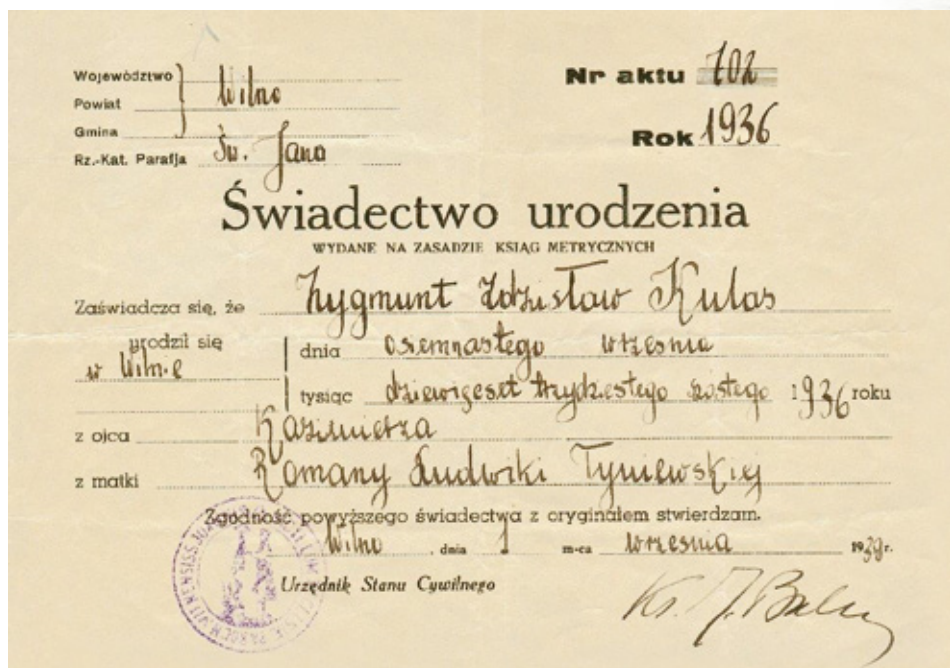 Województwo
Powiat
Wilno
Gmina
Rz.-Kat. Parafja Św. Jana
Nr aktu 702
Rok 1936
Świadectwo urodzenia
WYDANE NA ZASADZIE KSIĄG METRYCZNYCH
Zaświadcza się, że Zygmunt Zdzisław Kulas
urodził się dnia osiemnastego września
w Wilnie
tysiąc dziewięćset trzydziestego szóstego 1936 roku
z ojca Kazimierza
z matki Romany Ludwiki Tyniewskiej
Zgodność powyższego świadectwa z oryginałem stwierdzam.
Wilno, dnia 1 m-ca września 1939 r.
Urzędnik Stanu Cywilnego
Ks. J.